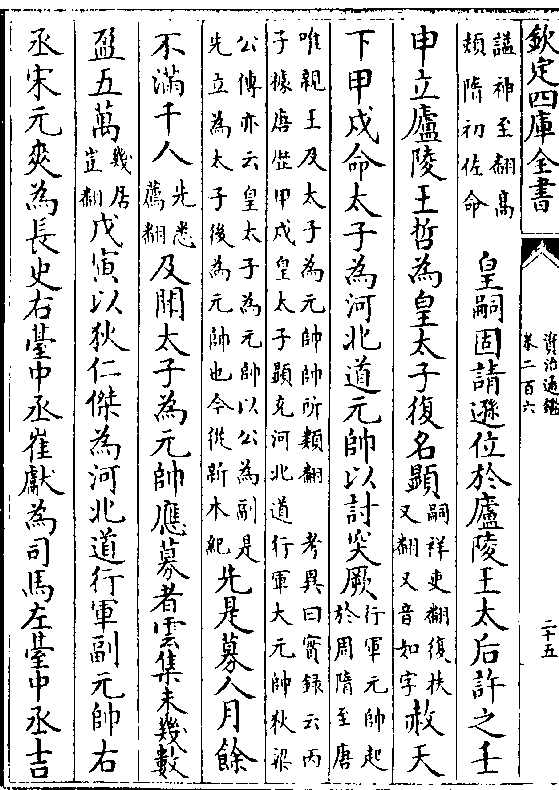 欽定四庫全書
資治通鑑
卷二百六
二十五
諡神至翻高
熲隋初佐命
皇嗣固請遜位於廬陵王太后許之壬
申立廬陵王哲為皇太子復名顯
嗣祥吏翻復扶
又翻又音如字
赦天
下甲戌命太子為河北道元帥以討突厥
行軍元帥起
於周隋至唐
唯親王及太子為元帥帥所類翻 考異曰實録云丙
子據唐歴甲戌皇太子顯充河北道行軍大元帥狄梁
公傳亦云皇太子為元帥以公為副是
先立為太子後為元帥也今從新本紀
先是募人月餘
不滿千人
先悉
薦翻
及聞太子為元帥應募者雲集未幾數
盈五萬
幾居
豈翻
戊寅以狄仁傑為河北道行軍副元帥右
丞宋元爽為長史右臺中丞崔獻為司馬左臺中丞吉